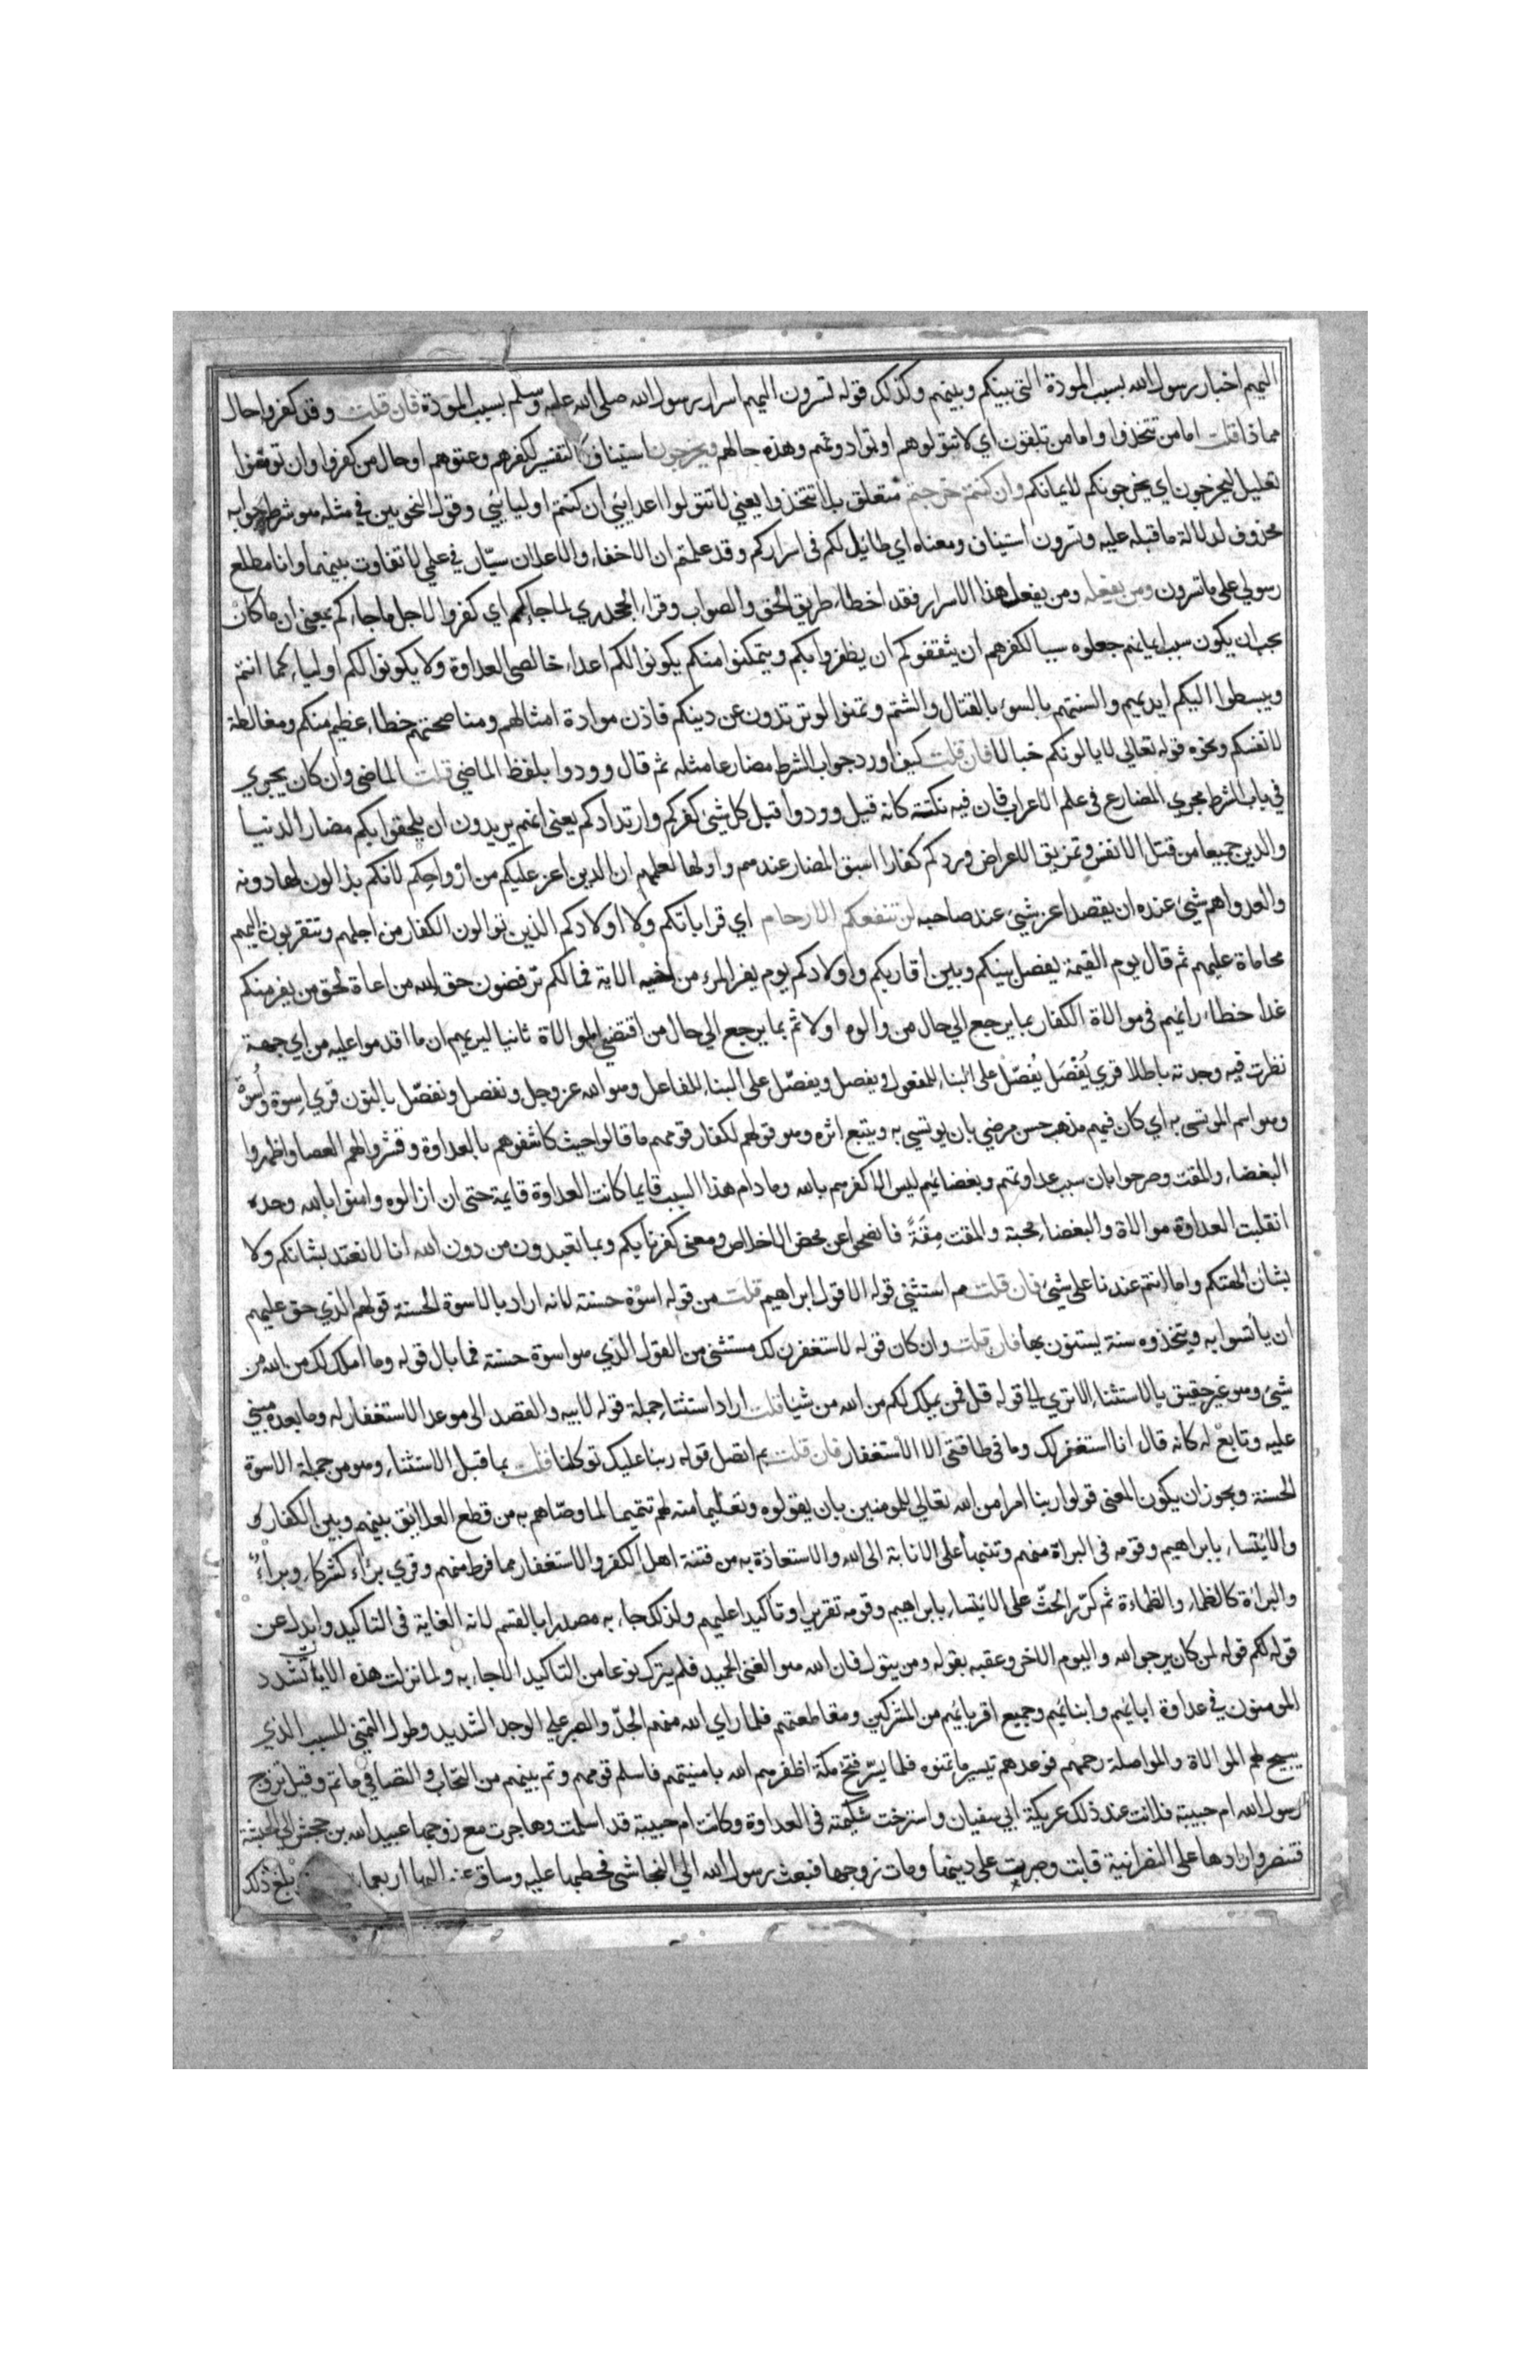 اليهم اخبار رسول الله بسبب المودة التي بينكم وبينهم وكذلك قوله تسرون اليهم اسرار رسول الله صلى الله عليه وسلم بسبب المودة فان قلت وقد كفروا حال
مماذا قلت اما من تتخذوا واما من تلقون اي لا تتولوهم او توادونهم وهذه حالهم ويخرجون استيناف كالتفسير لكفرهم وعتوهم او حال من كفروا وان تومنوا
تعليل ليخرجون اي يخرجونكم لايمانكم وان كنتم خرجتم متعلق بلا تتخذوا يعني لا تتولوا اعدايئي ان كنتم اوليايئي وقول النحويين في مثله هو شرط جوابه
محذوف لدلالة ما قبله عليه وتسرون استيناف ومعناه اي طايل لكم في اسراركم وقد علمتم ان الاخفاء والاعلان سيّان في علمي لا تفاوت بينهما وانا مطلع
رسولي على ما تسرون ومن يفعله ومن يفعل هذا الاسرار فقد اخطاء طريق الحق والصواب وقراء الجحدري لما جاءكم اي كفروا لاجل ما جاءكم بمعني ان ما كان
يجب ان يكون سبب ايمانهم جعلوه سببا لكفرهم ان يثقفوكم ان يظفروا بكم ويتمكنوا منكم يكونوا لكم اعداء خالصي العداوة ولا يكونوا لكم اولياء كما انتم
ويبسطوا اليكم ايديهم والسنتهم بالسوء بالقتال والشتم وتمنوا لو ترتدون عن دينكم فاذن موادة امثالهم ومناصحتهم خطاء عظيم منكم ومغالطة
لانفسكم ونحوه قوله تعالي لا يالونكم خبالا فان قلت كيف اورد جواب الشرط مضارعا مثله ثم قال وودوا بلفظ الماضي قلت الماضي وان كان يجري
في باب الشرط مجري المضارع في علم الاعراب فان فيه نكتة كانه قيل وودوا قبل كل شيئ كفركم وارتدادكم يعني انهم يريدون ان يلحقوا بكم مضار الدنيا
والدين جميعا من قتل الانفس وتمزيق الاعراض وردكم كفارا اسبق المضار عندهم واولها لعلمهم ان الدين اعز عليكم من ارواحكم لانكم بذالون لها دونه
والعدو اهم شيئ عنده ان يقصد اعز شيئ عند صاحبه لن تنفعكم الارحام اي قراباتكم ولا اولادكم الذين توالون الكفار من اجلهم وتتقربون اليهم
محاماة عليهم ثم قال يوم القيمة يفصل بينكم وبين اقاربكم واولادكم يوم يفر المرء من اخيه الاية فما لكم ترفضون حق الله مراعاة لحق من يفر منكم
غدا خطاء رايهم في موالاة الكفار بما يرجع الي حال من والوه اولا ثم بما يرجع الي حال من اقتضي الموالاة ثانيا ليريهم ان ما اقدموا عليه من اي جهة
نظرت فيه وجدته باطلا قري يُفْصَل يُفصّل على البناء للمفعول ويفصل ويفصّل على البناء للفاعل وهو الله عز وجل ونفصل ونفصّل بالنون قري اِسوة واُسوة
وهو اسم الموتسى به اي كان فيهم مذهب حسن مرضي بان يوتسي به ويتبع اثره وهو قولهم لكفار قومهم ما قالوا حيث كاشفوهم بالعداوة وقشروا لهم العصا واظهروا
البغضاء والمقت وصرحوا بان سبب عداوتهم وبغضائهم ليس الا كفرهم بالله وما دام هذا السبب قايما كانت العداوة قايمة حتى ان ازالوه وامنوا بالله وحده
انقلبت العداوة موالاة والبغضاء محبة والمقت مِقَةً فافصحوا عن محض الاخلاص ومعنى كفرنا بكم وبما تعبدون من دون الله انا لا نعتد بشانكم ولا
بشان الهتكم وما انتم عندنا على شيئ فان قلت مم استثني قوله الا قول ابراهيم قلت من قوله اسوة حسنة لانه اراد بالاسوة الحسنة قولهم الذي حق عليهم
ان ياتسوا به ويتخذوه سنة يستنون بها فان قلت وان كان قوله لاستغفرن لك مستثنى من القول الذي هو اسوة حسنة فما بال قوله وما املك لك من الله من
شيئ وهو غير حقيق بالاستثناء الا تري الي قوله قل فمن يملك لكم من الله من شيئا قلت اراد استثناء جملة قوله لابيه والقصد الى موعد الاستغفار له وما بعده مبني
عليه وتابع له كانه قال انا استغفر لك وما في طاقتي الا الاستغفار فان قلت بم اتصل قوله ربنا عليك توكلنا قلت بما قبل الاستثناء وهو من جملة الاسوة
الحسنة ويجوز ان يكون المعنى قولوا ربنا امرا من الله تعالي للمومنين بان يقولوه وتعليما منه لهم تتميما لما وصّاهم به من قطع العلائق بينهم وبين الكفار
والائتساء بابراهيم وقومه في البراة منهم وتنبيها على الانابة الى الله والاستعاذة به من فتنة اهل الكفر والاستغفار مما فرط منهم وقري برُاء كشركاء وبراءٌ
والبراءة كالظماء والظماءة ثم كرّر الحثّ على الائتساء بابراهيم وقومه تقريرا وتاكيدا عليهم ولذلك جاء به مصدرا بالقسم لانه الغاية في التاكيد وابدل عن
قوله لكم قوله لمن كان يرجو الله واليوم الاخر وعقبه بقوله ومن يتول فان الله هو الغني الحميد فلم يترك نوعا من التاكيد الا جاء به ولما نزلت هذه الايات تشدد
المومنون في عداوة ابائهم وابنائهم وجميع اقربائهم من المشركين ومقاطعتهم فلما راي الله منهم الجدّ والصبر على الوجد الشديد وطول التمني للسبب الذي
يبيح لهم الموالاة والمواصلة رحمهم فوعدهم تيسير ما تمنوه فلما يسّر فتح مكة اظفرهم الله بامنيتهم فاسلم قومهم وتم بينهم من التحاب والتصافي ما تم وقيل تزوج
رسول الله ام حبيبة فلانت عند ذلك عريكة ابي سفيان واسترخت شكيمته في العداوة وكانت ام حبيبة قد اسلمت وهاجرت مع زوجها عبيد الله بن جحش الي الحبشة
فتنصر وارادها على النصرانية فابت وصبرت على دينها ومات زوجها فبعث رسول الله الي النجاشي فخطبها عليه وساق عنه اليها اربعماية وبلغ ذلك